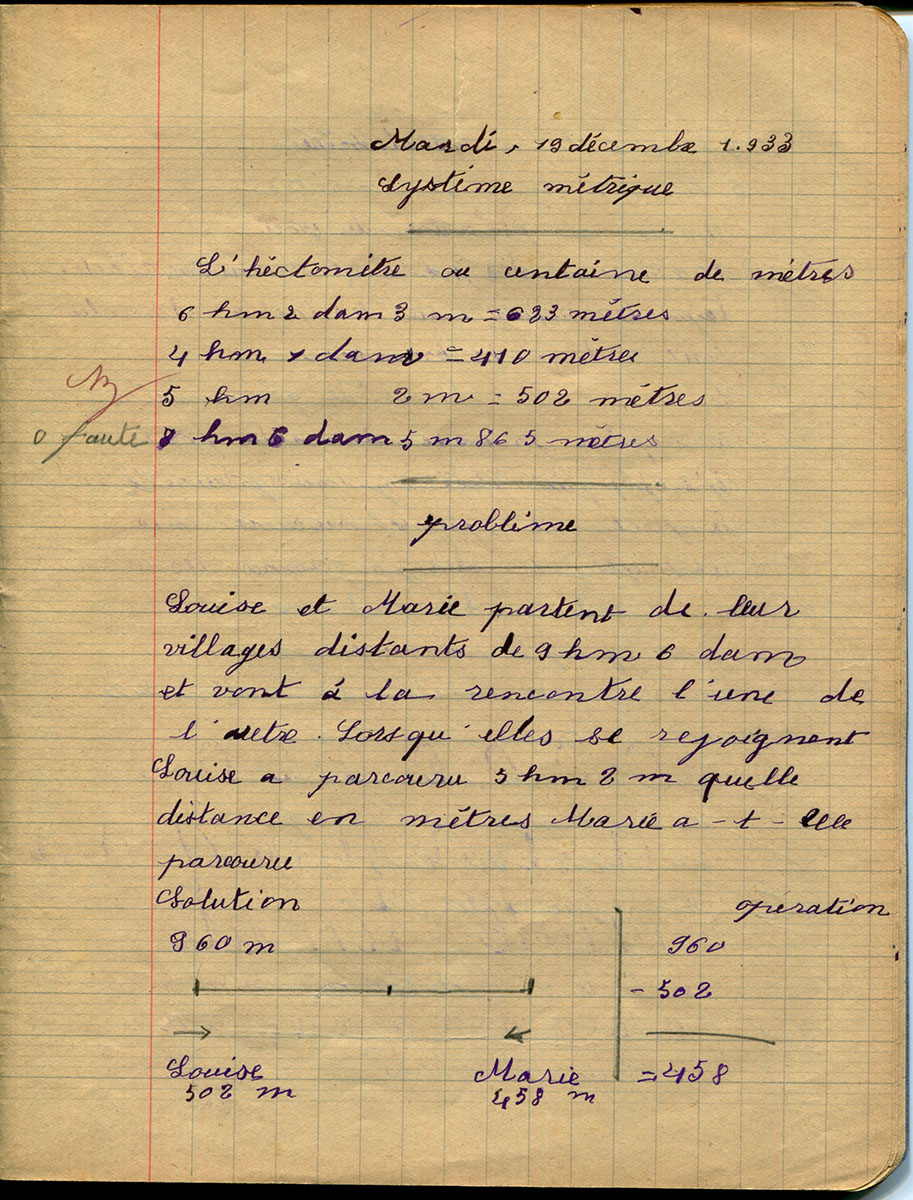 Mardi, 19 décembre 1.933
Système métrique
L'héctomètre ou centaine de mètres
6 hm 2 dam 3 m = 623 mètres
4 hm 1 dam = 410 mètres
5 hm 2 m = 502 mètres
0 faute 8 hm 6 dam 5 m 865 mètres
problème
Louise et Marie partent de leur
villages distants de 9 hm 6 dam
et vont à la rencontre l'une de
l'autre. Lorsqu'elles se rejoignent
Louise a parcouru 5 hm 2 m quelle
distance en mètres Marie a-t-elle
parcouru
Solution opération
960 m 960
- 502
Louise Marie = 458
502 m 458 m